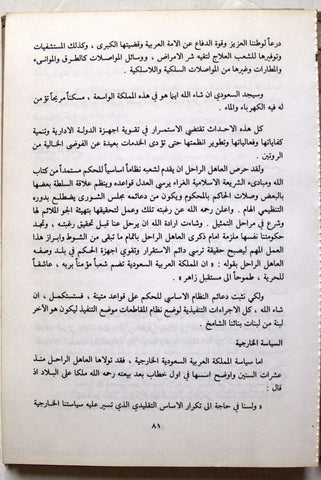 درعاً لوطننا العزيز وقوة الدفاع عن الامة العربية وقضيتها الكبرى ، وكذلك المستشفيات
وتوفيرها للشعب العلاج لتقيه شر الامراض ، ووسائل المواصلات كالطرق والموانىء
والمطارات وغيرها من المواصلات السلكية واللاسلكية .
وسيجد السعودي ان شاء الله اينما هو في هذه المملكة الواسعة ، مسكناً مريحاً تؤمن
له فيه الكهرباء والماء .
كل هذه الاحداث تقتضي الاستمرار في تقوية اجهزة الدولة الادارية وتنمية
كفاياتها وفعالياتها وتطوير انظمتها حتى تؤدى الخدمات بعيدة عن الفوضى الخالية من
الروتين .
ولقد حرص العاهل الراحل ان يقدم لشعبه نظاماً اساسياً للحكم مستمداً من كتاب
الله ومبادىء الشريعة الاسلامية الغراء يرسي العدل قواعده وينظم علاقة السلطة بعضها
بالبعض وصلات الحاكم بالمحكوم ويكون من دعائمه مجلس الشورى يضطلع بدوره
التنظيمي الهام . واعلن رحمه الله عن رغبته تلك وعمل لتحقيقها بتهيئة الجو الملائم لها
وشرع في مراحل التمثيل . وشاءت ارادة الله ان يرحل عنا قبل تحقيق رغبته ، وتجد
حكومتنا نفسها ملزمة امام ذكرى العاهل الراحل باتمام ما تبقى من الشوط وابراز هذا
العمل المهم ليصبح حقيقة ترسي دعائم الاستقرار وتقوي اجهزة الحكم في بلد وصفه
العاهل الراحل بقوله : « ان المملكة العربية السعودية تضم شعباً مؤمناً بربه ، عاشقاً
للحرية ، طموحاً الى مستقبل زاهر » .
ولكي نثبت دعائم النظام الاساسي للحكم على قواعد متينة ، فسنستكمل ، ان
شاء الله ، كل الاجراءات التنفيذية لوضع نظام المقاطعات موضع التنفيذ ليكون هو الآخر
لبنة من لبنات بنائنا الشامخ .
السياسة الخارجية
اما سياسة المملكة العربية السعودية الخارجية ، فقد تولاها العاهل الراحل منذ
عشرات السنين واوضح اسسها في اول خطاب بعد بيعته رحمه الله ملكا على البلاد اذ
قال :
« ولسنا في حاجة الى تكرار الاساس التقليدي الذي تسير عليه سياستنا الخارجية
٨١